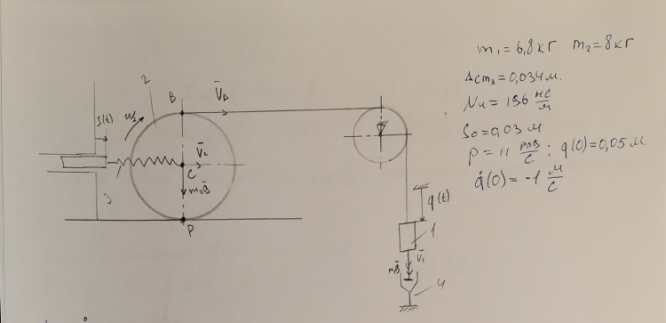 m₁ = 6,8 кг m₂ = 8 кг
Δст₃ = 0,034 м.
Nч = 196 нс/м
S₀ = 0,03 м
p = 11 рад/с ; q(0) = 0,05 м.
q̇(0) = -1 м/с
2
S(t)
ω₂
B
V̄_B
V̄c
C
m₂ḡ
3
P
q(t)
1
V̄₁
4